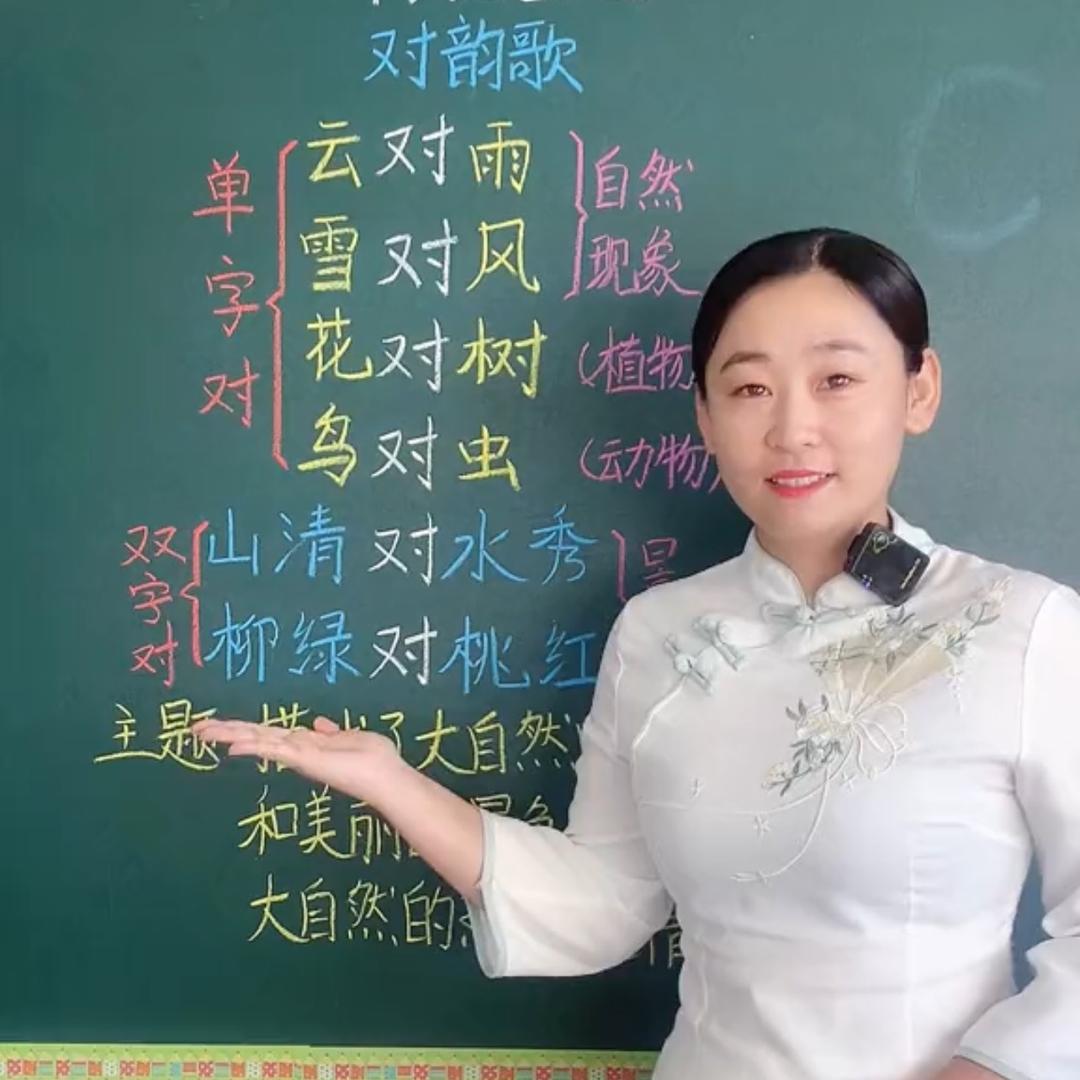 对韵歌
单字对
云对雨
雪对风
自然
现象
花对树
(植物
鸟对虫
(动物)
双字对
山清对水秀
柳绿对桃红
主题 描 了大自然
和美丽
大自然的